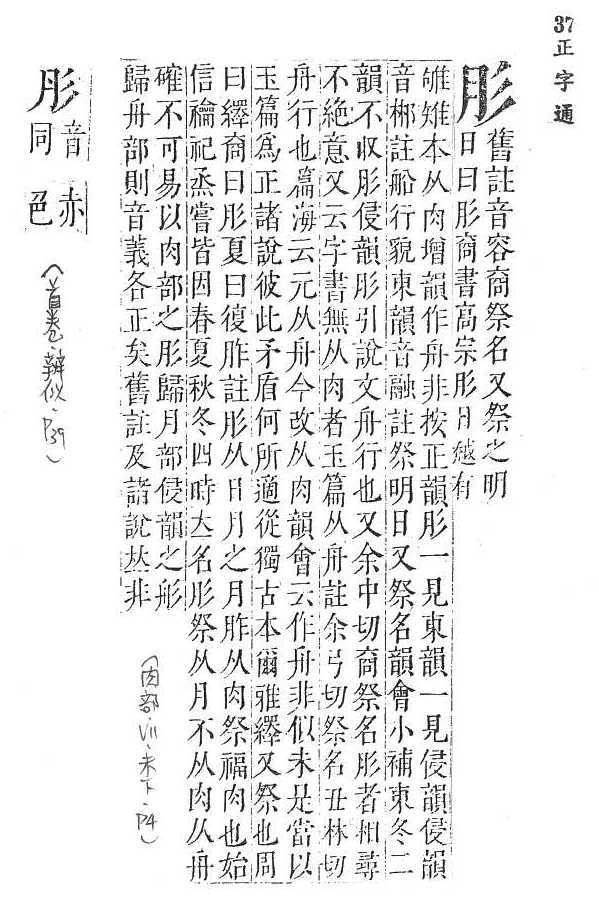 37正字通
肜
舊註音容商祭名又祭之明
日曰肜商書高宗肜日越有
雊雉本从肉增韻作舟非按正韻肜一見東韻一見侵韻侵韻
音郴註船行貌東韻音融註祭明日又祭名韻會小補東冬二
韻不收肜侵韻肜引說文舟行也又余中切商祭名肜者相尋
不絶意又云字書無从肉者玉篇从舟註余弓切祭名丑林切
舟行也篇海云元从舟今改从肉韻會云作舟非似未是當以
玉篇爲正諸說彼此矛盾何所適從獨古本爾雅繹又祭也周
曰繹商曰肜夏曰復胙註肜从日月之月胙从肉祭福肉也始
信禴祀烝嘗皆因春夏秋冬四時立名肜祭从月不从肉从舟
確不可易以肉部之肜歸月部侵韻之彤
歸舟部則音義各正矣舊註及諸說𠀤非
(肉部.VII.未下.P4)
彤
音同
赤色
(首卷.辨似.P39)